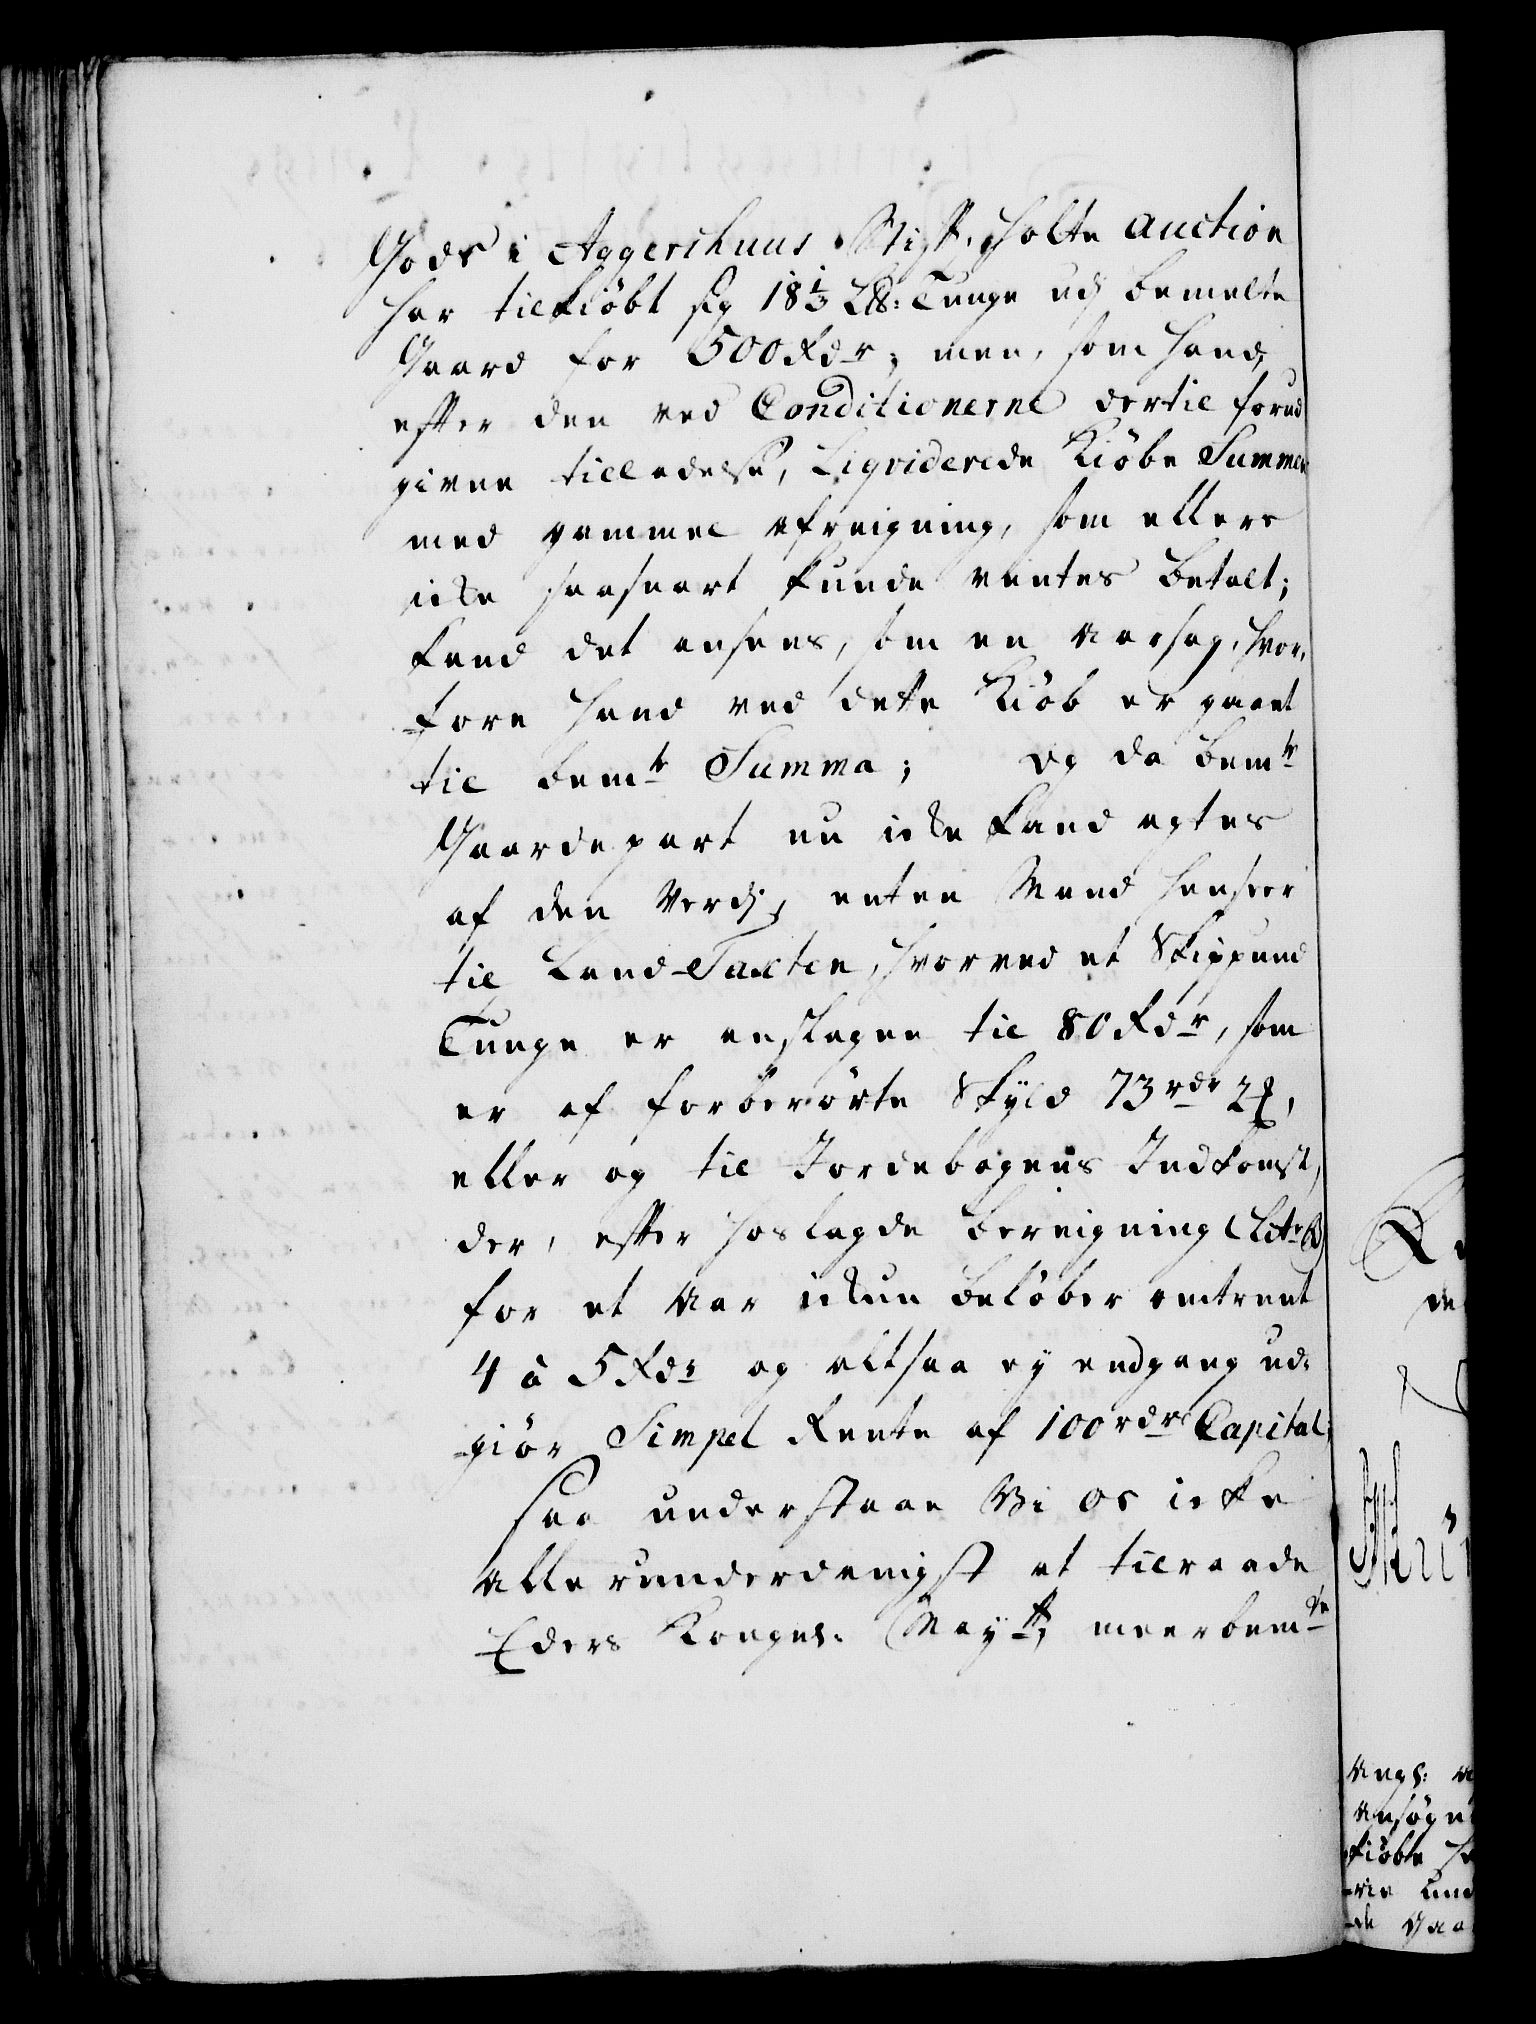 Gods i Aggershuus Stift, holte Auction
har tilkiøbt sig 18⅓ L℔: Tunge udj bemelte
Gaard for 500 Rdr; men, som hand,
efter den ved Conditionerne dertil forud
given tilladelse, Liqviderede Kiøbe Summen
med gammel afreigning, som ellers
icke saasnart kunde ventes betalt;
kand det ansees, som en Aarsag, hvor,
fore hand ved dette Kiøb er gaaet
til bemte Summa; Og da bemte
Gaardepart nu icke kand agtes
af den Verdj, enten Mand henseer
til Land-Taxten, hvorved et Skippund
Tunge er anslagen til 80 Rdr, som
er af forberørte Skyld 73 rdr 2 ß,
eller og til Jordebogens Indkomst,
der, efter hoslagde bereigning (Litr B)
for et Aar ickun beløber omtrent
4 à 5 Rdr og altsaa ey endgang ud-
giør Simpel Rente af 100 rdrs Capital;
saa understaae Vi os icke
allerunderdanigst at tilraade
Eders Kongel: Mayt, meerbemte
de
Angl:
Ansøgn
kiøbte